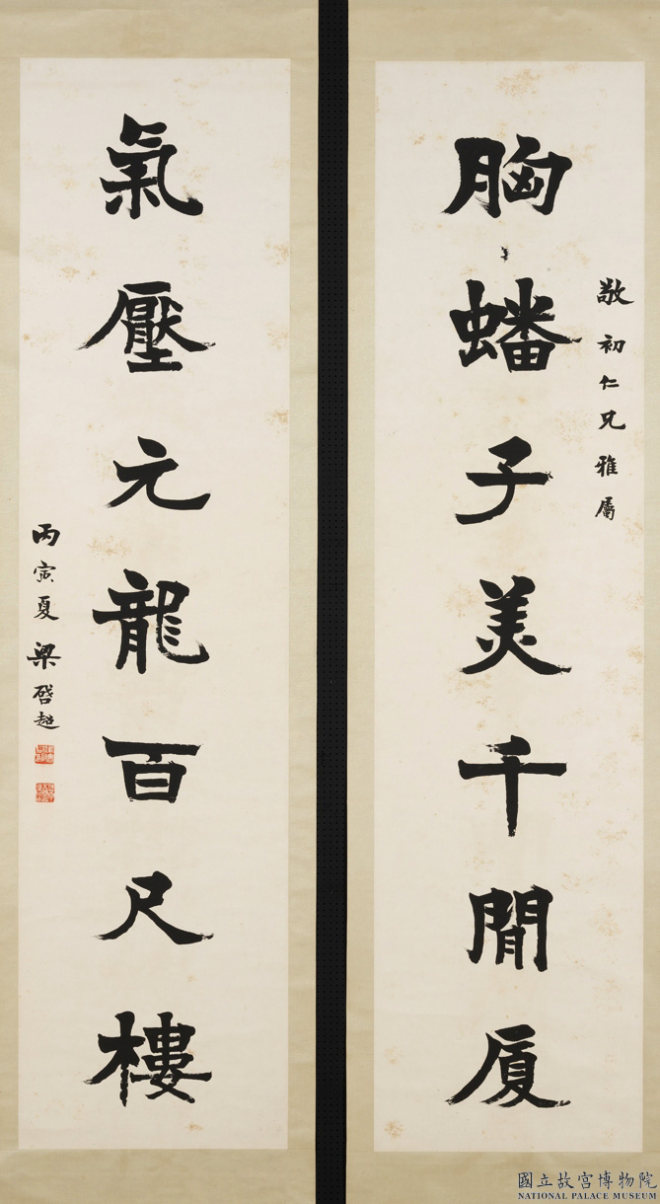 敬初仁兄雅屬
胸蟠子美千間厦
氣壓元龍百尺樓
丙寅夏梁啓超
國立故宮博物院
NATIONAL PALACE MUSEUM